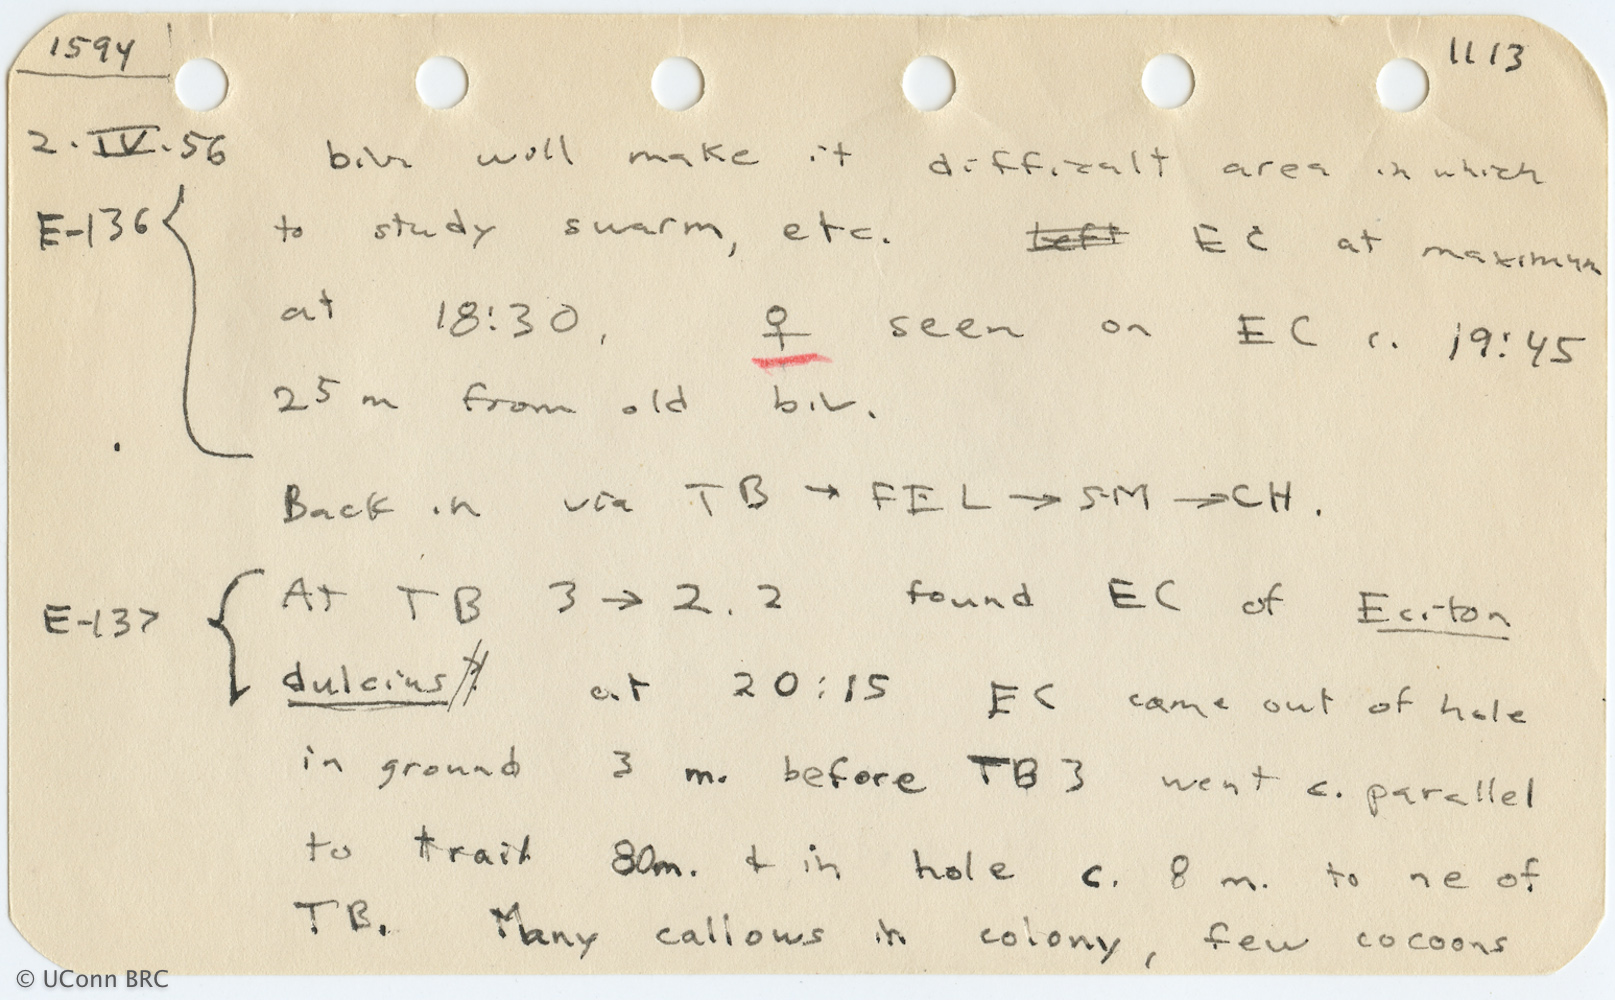 1594
1113
2.IV.56 biv will make it difficult area in which
E-136 to study swarm, etc. left EC at maximum
at 18:30, ♀ seen on EC c. 19:45
25 m from old biv.
Back in via TB → FEL → SM → CH.
E-137 At TB 3 → 2.2 found EC of Eciton
dulcius at 20:15 EC came out of hole
in ground 3 m. before TB3 went c. parallel
to trail 80m. + in hole c. 8 m. to ne of
TB. Many callows in colony, few cocoons
© UConn BRC